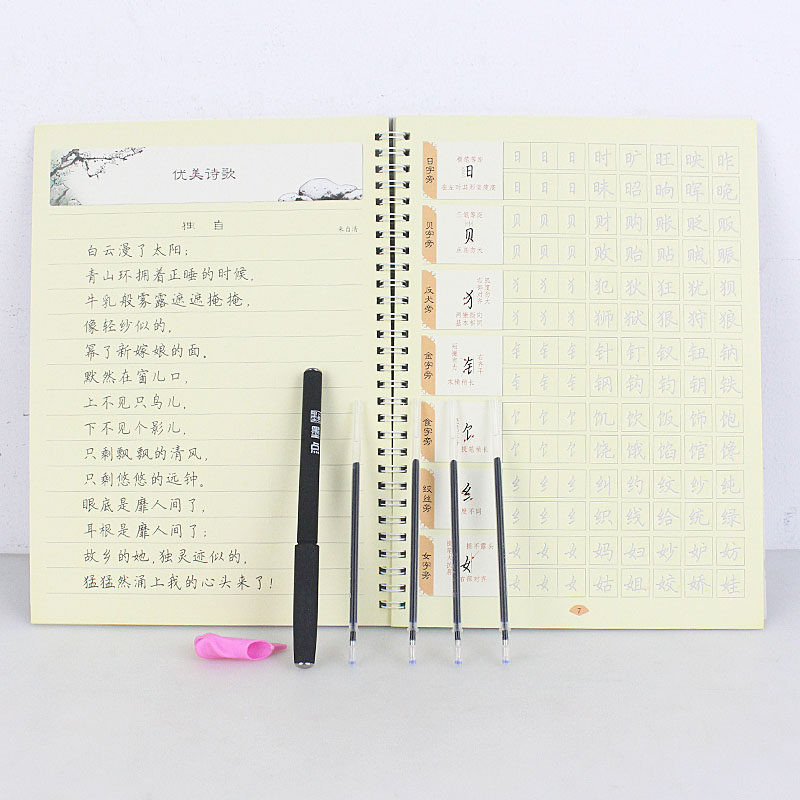 优美诗歌
独 自
朱自清
白云漫了太阳；
青山环拥着正睡的时候，
牛乳般雾露遮遮掩掩，
像轻纱似的，
幂了新嫁娘的面。
默然在窗儿口，
上不见只鸟儿，
下不见个影儿，
只剩飘飘的清风，
只剩悠悠的远钟。
眼底是靡人间了，
耳根是靡人间了；
故乡的她，独灵迹似的，
猛猛然涌上我的心头来了！
墨点
日字旁
日
日 日 日 时 旷 旺 映 昨
昧 昭 晌 晖 晚
贝字旁
三笔等距
贝
贝 贝 贝 财 购 账 贬 贩
败 贻 贴 贼 赈
反犬旁
犭
基本平行
犭 犭 犭 犯 狄 狂 犹 狈
狮 狱 狠 狩 狼
金字旁
钅
末横稍长
钅 钅 钅 针 钉 钗 钮 钠
钢 钩 钧 钥 铁
食字旁
饣
饣 饣 饣 饥 饮 饭 饰 饱
饶 饿 馅 馆 馋
绞丝旁
纟
度不同
纟 纟 纟 纠 约 纹 纱 纯
织 线 给 统 绿
女字旁
女
捺不露头
右部对齐
女 女 女 妈 妇 妙 妒 妨
姑 姐 姣 娇 娃
7